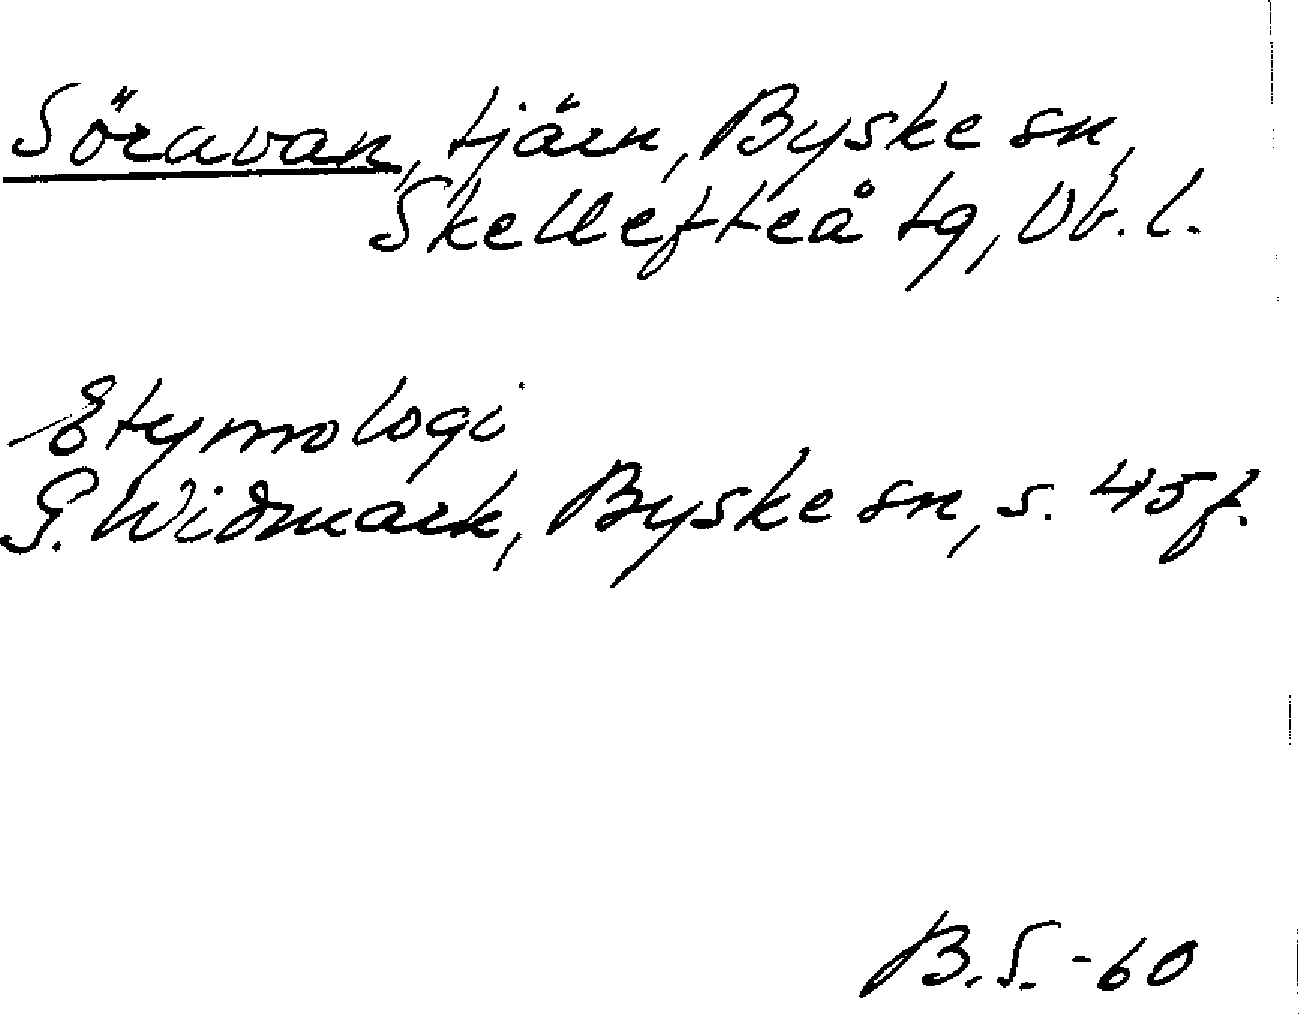 Söravan, tjärn, Byske sn,
Skellefteå tg, Vb. l.
Etymologi
G. Widmark, Byske sn, s. 45 f.
B.S. -60